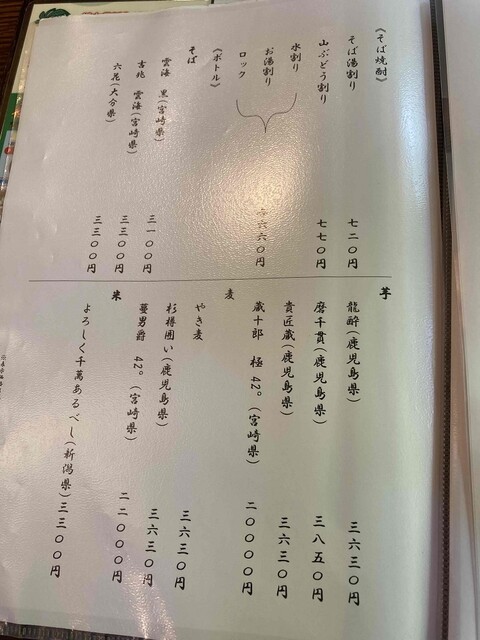 《そば焼酎》
そば湯割り 七二〇円
山ぶどう割り 七七〇円
水割り
お湯割り 六六〇円
ロック
《ボトル》
そば
雲海 黒(宮崎県) 三一〇〇円
吉兆 雲海(宮崎県) 三三〇〇円
六花(大分県) 三三〇〇円
芋
龍酔(鹿児島県) 三六三〇円
磨千貫(鹿児島県) 三八五〇円
貴匠蔵(鹿児島県) 三六三〇円
蔵十郎 極 42°(宮崎県) 二〇〇〇〇円
麦
やき麦 三六三〇円
杉樽囲い(鹿児島県) 三六三〇円
蔓男爵 42°(宮崎県) 二二〇〇〇円
米
よろしく千萬あるべし(新潟県)三三〇〇円